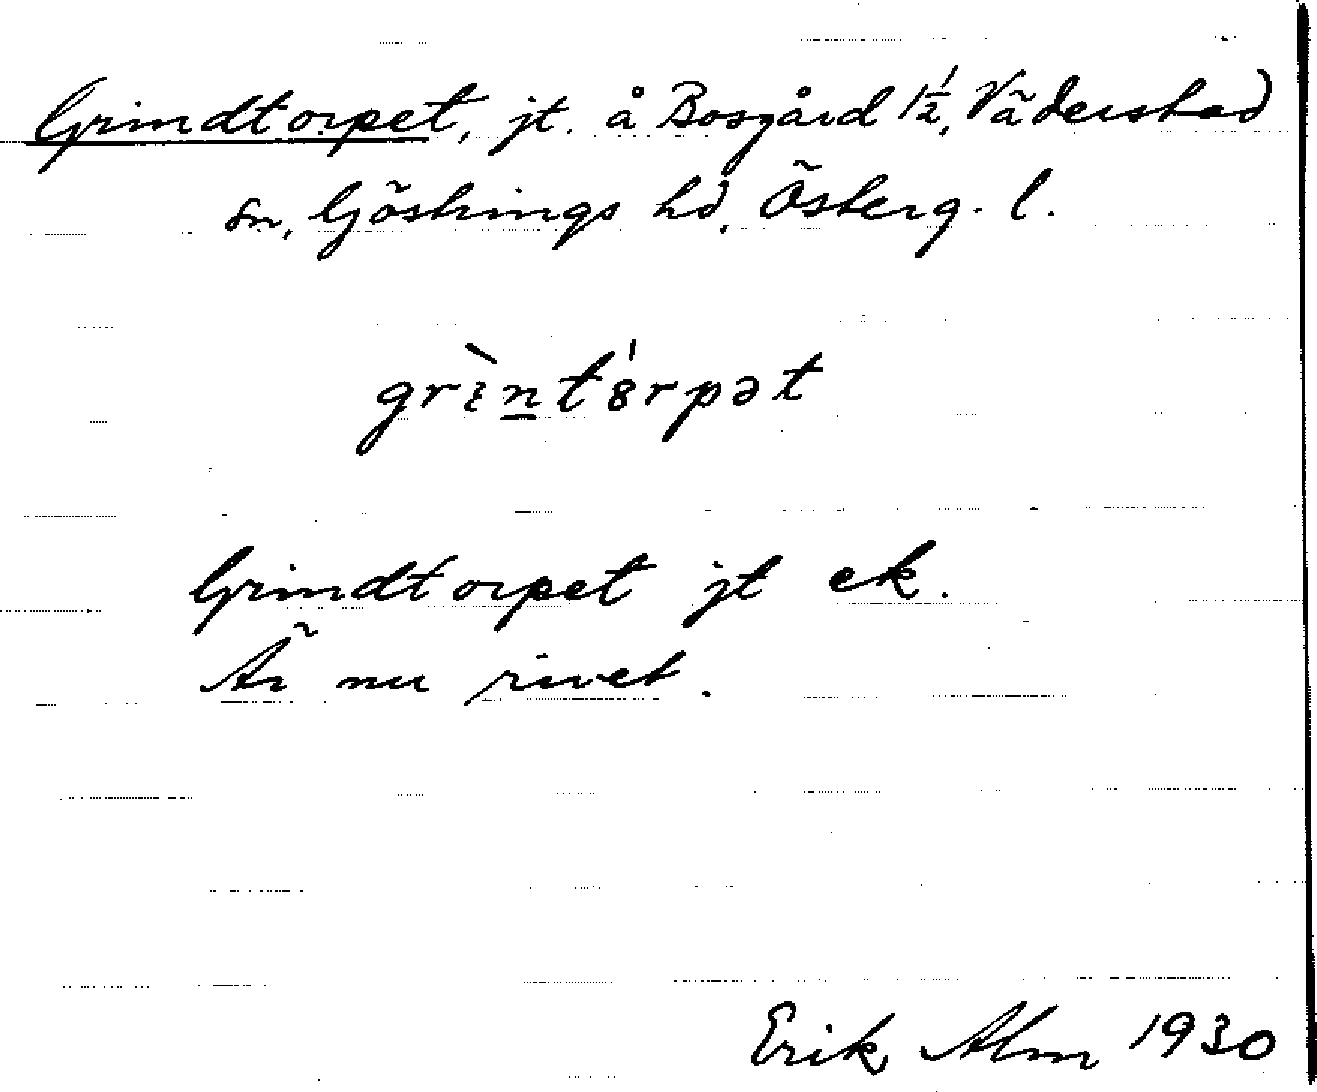 Grindtorpet, jt. å Bosgård 1 1/2, Väderstad
sn, Göstrings hd, Österg. l.
grìnt8́rpət
Grindtorpet jt ek.
Är nu rivet.
Erik Alm 1930